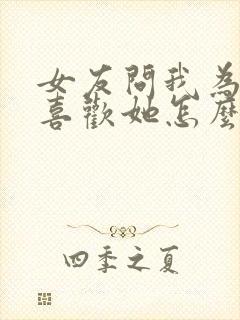 女友問我為
喜歡她怎麼
四季之夏